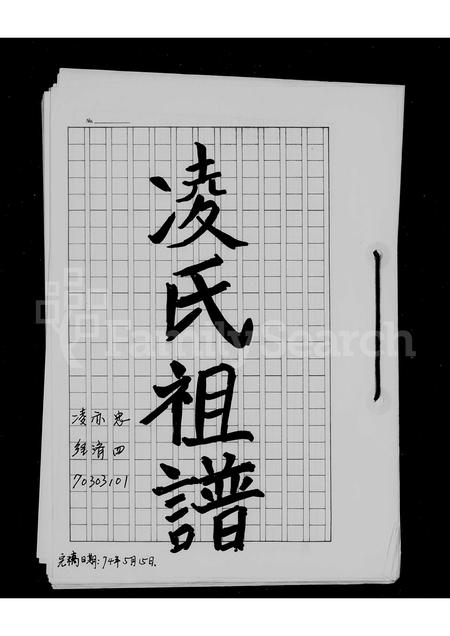 No.
凌氏祖譜
凌亦忠
經濟四
70303101
完稿日期:74年5月15日.
FamilySearch